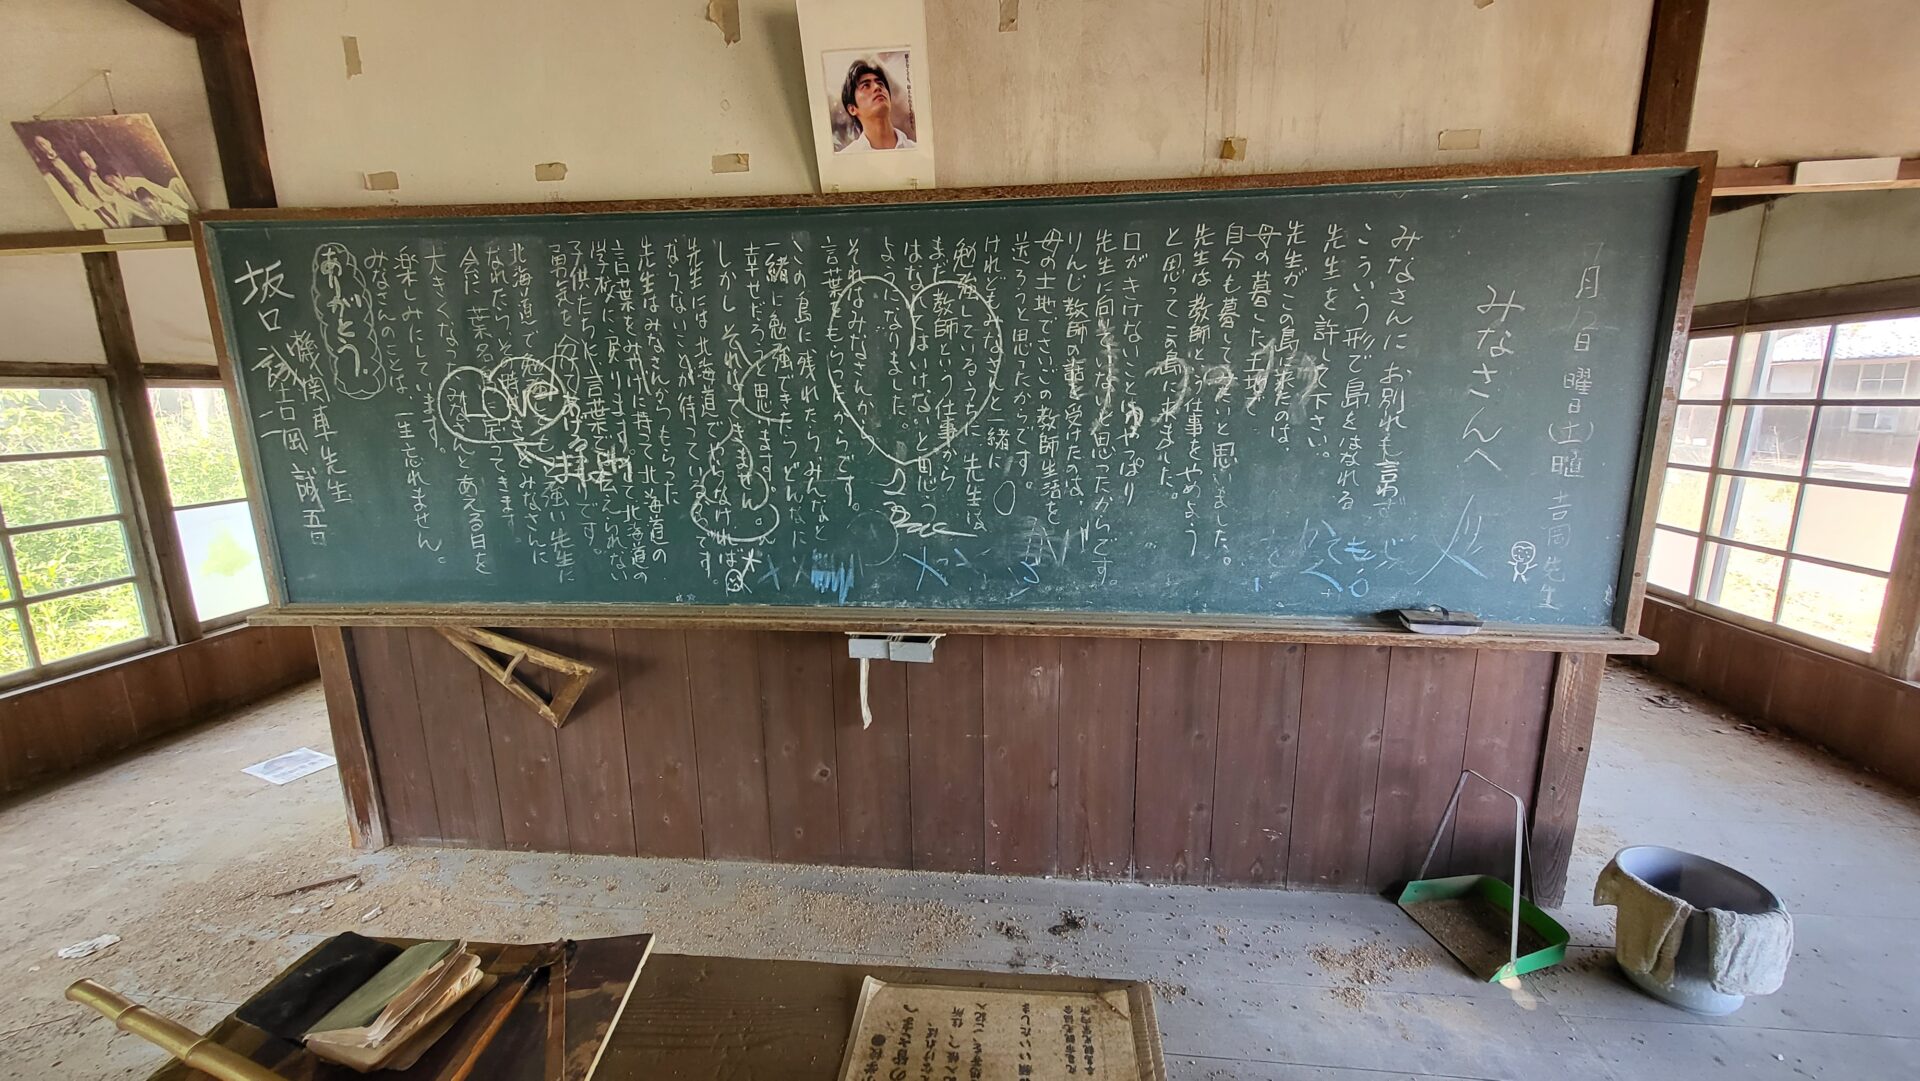 7月12日 曜日(土) 吉岡先生
みなさんへ
みなさんにお別れも言わず
こういう形で島をはなれる
先生を許して下さい。
先生がこの島に来たのは、
母の暮した土地で
自分も暮してみたいと思いました。
先生は教師という仕事をやめよう
と思ってこの島に来ました。
口がきけないことはやっぱり
先生に向いていないと思ったからです。
りんじ教師の話を受けたのは、
母の土地でさいごの教師生活を
送ろうと思ったからです。
けれどもみなさんと一緒に
勉強しているうちに先生は
まだ教師という仕事から
はなれてはいけないと思う
ようになりました。
それはみなさんから
言葉をもらったからです。
この島に残れたら、みんなと
一緒に勉強できたらどんなに
幸せだろうと思います。
しかしそれはできません。
先生には北海道でやらなければ
ならないことが待っているのです。
先生はみなさんからもらった
言葉をみやげに持って北海道の
学校に戻ります。そして北海道の
子供たちに言葉では伝えられない
勇気を分けてあげるつもりです。
北海道で勉強してもっと強い先生に
なれたらその時はきっとみなさんに
会に葉名島に戻ってきます。
大きくなったみなさんとあえる日を
楽しみにしています。
みなさんのことは、一生忘れません。
ありがとう。
機関車先生
吉岡誠吾
坂口
LOVE